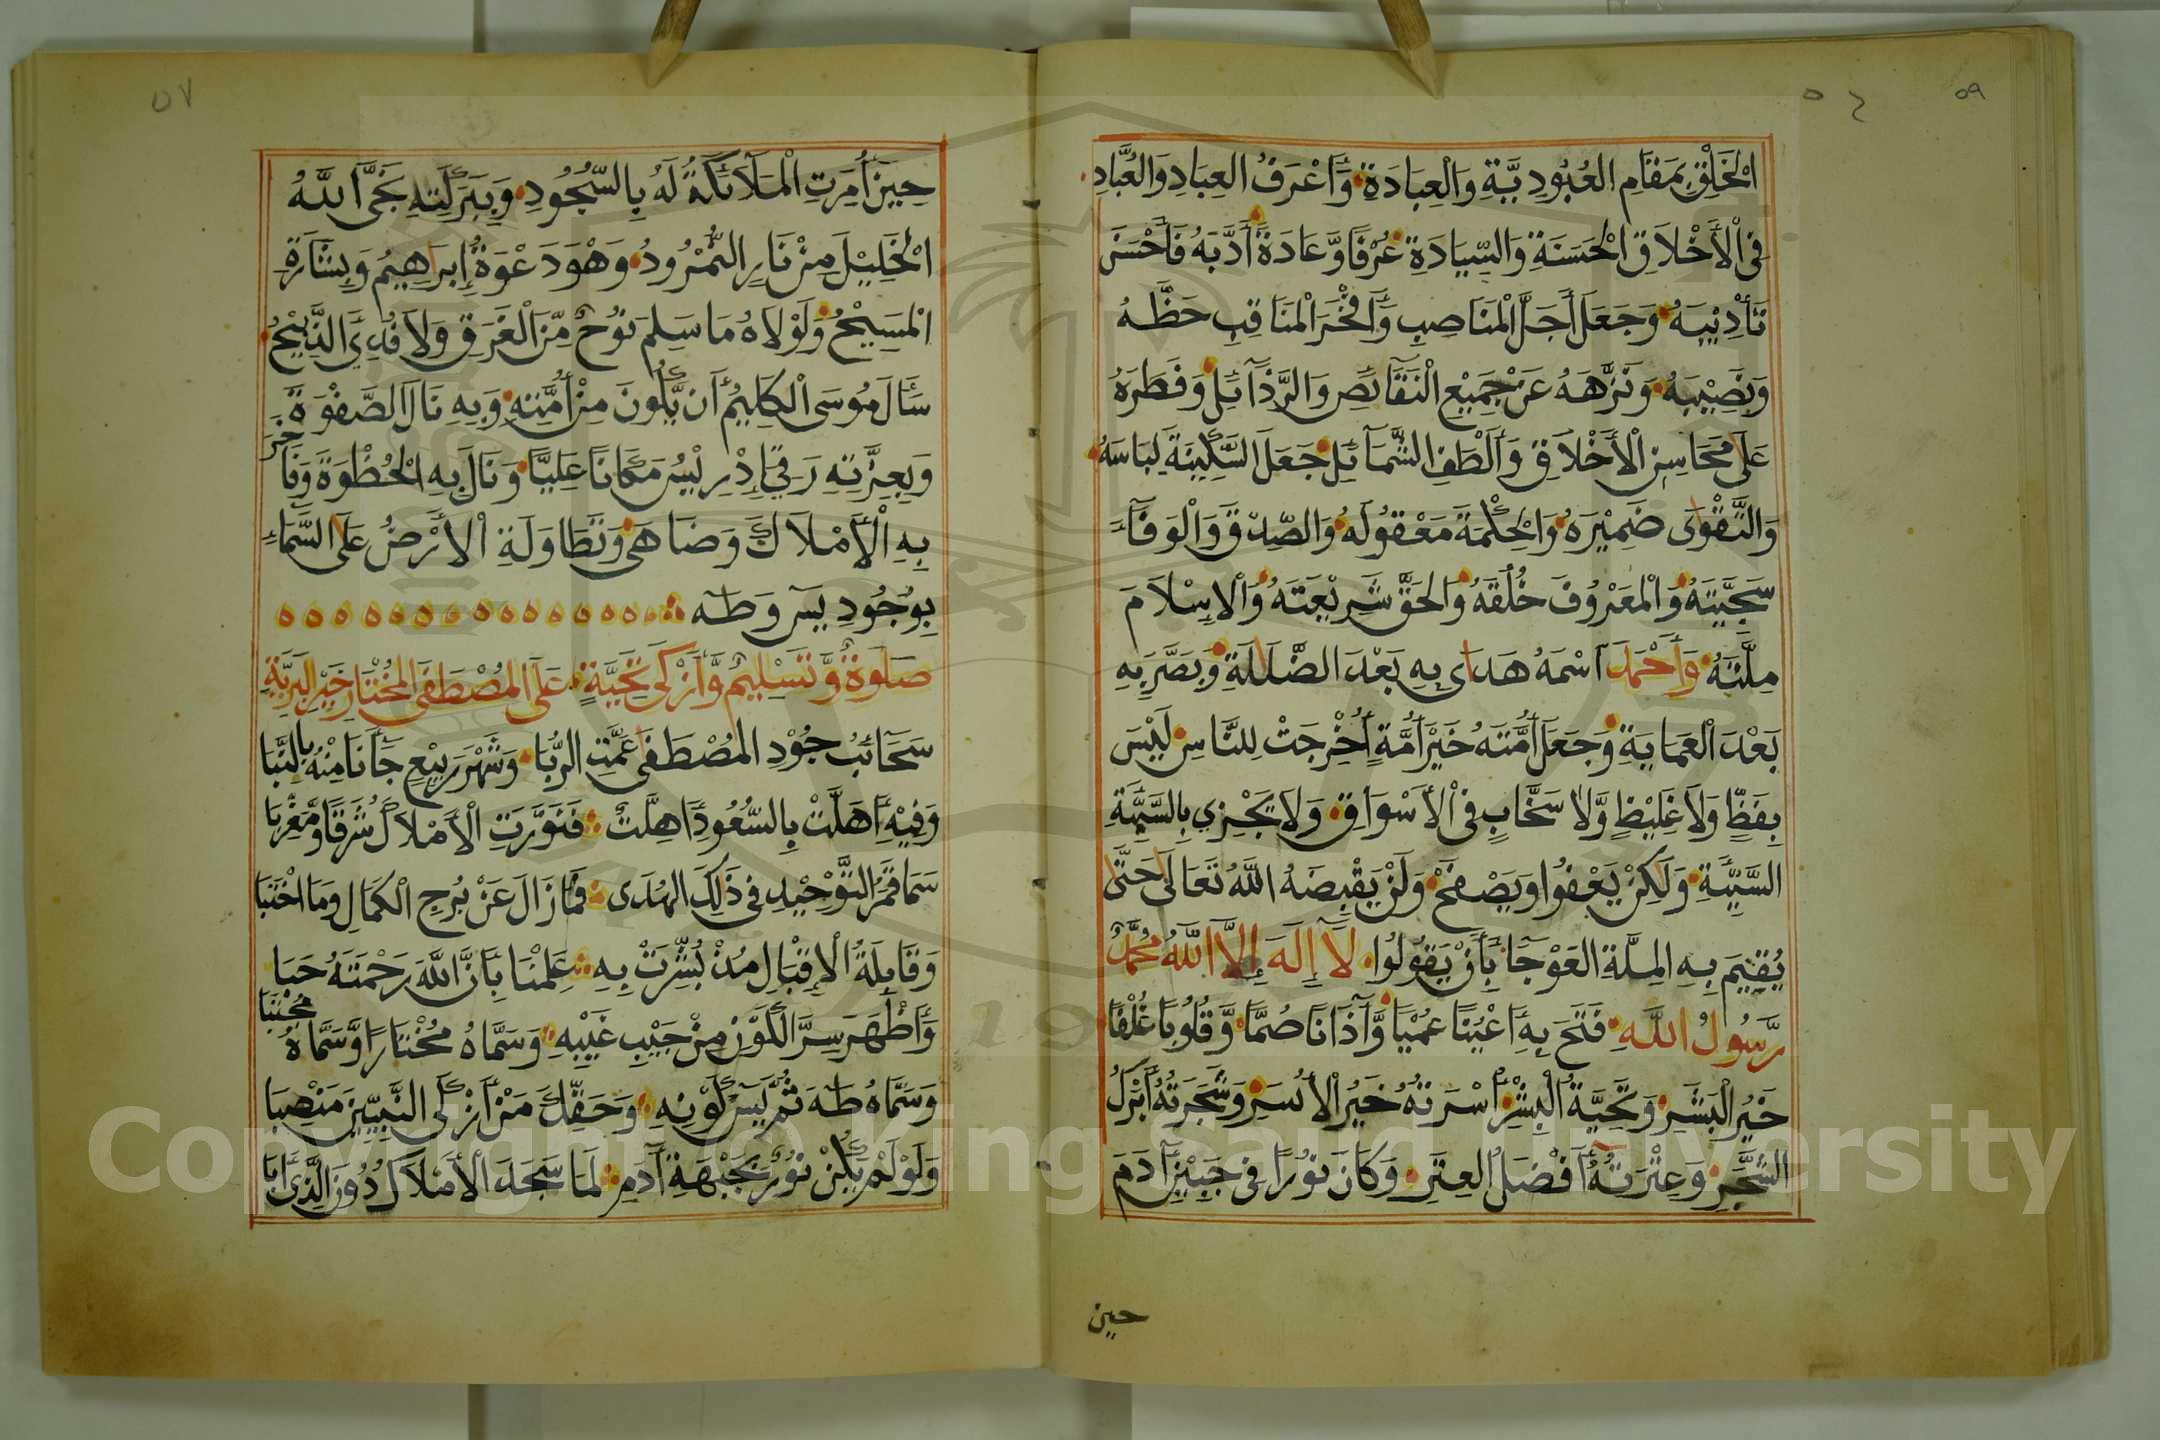 ٥٩
٥٤
الْخَلْقِ بِمَقَامِ العُبُودِيَّةِ وَالْعِبَادَةِ وَأَعْرَفُ العِبَادِ وَالعُبَّادِ
فِي الْأَخْلَاقِ الْحَسَنَةِ وَالسِّيَادَةِ عُرْفًا وَّعَادَةً أَدَّبَهُ فَأَحْسَنَ
تَأدِيْبَهُ وَجَعَلَ أَجَلَّ الْمَنَاصِبِ وَأَفْخَرَ الْمَنَاقِبِ حَظَّهُ
وَنَصِيْبَهُ وَنَزَّهَهُ عَنْ جَمِيْعِ الْنَقَائِصِ وَالرَّذَآئِلِ وَفَطَرَهُ
عَلَى مَحَاسِنِ الْأَخْلَاقِ وَأَلْطَفِ الشَّمَآئِلِ جَعَلَ السَّكِيْنَةَ لِبَاسَهُ
وَالتَّقْوَى ضَمِيْرَهُ وَالْحِكْمَةَ مَعْقُولَهُ وَالصِّدْقَ وَالْوَفَآءَ
سَجِيَّتَهُ وَالْمَعْرُوفَ خُلُقَهُ وَالْحَقَّ شَرِيْعَتَهُ وَالْإِسْلَامَ
مِلَّتَهُ وَأَحْمَدَ اسْمَهُ هَدَى بِهِ بَعْدَ الضَّلَالَةِ وَبَصَّرَ بِهِ
بَعْدَ الْعَمَايَةِ وَجَعَلَ أُمَّتَهُ خَيْرَ أُمَّةٍ أُخْرِجَتْ لِلنَّاسِ لَيْسَ
بِفَظٍّ وَلَا غَلِيْظٍ وَّلَا سَخَّابٍ فِي الْأَسْوَاقِ وَلَا يَجْزِي بِالسَّيِّئَةِ
السَّيِّئَةِ وَلَكِنْ يَعْفُوا وَيَصْفَحْ وَلَنْ يَقْبِضَهُ اللَّهُ تَعَالَى حَتَّى
يُقِيْمَ بِهِ المِلَّةَ العَوْجَآ بِأَنْ يَقُولُوا لَآ إِلَهَ إِلَّا اللَّهُ مُحَمَّدٌ
رَّسُولُ اللَّهِ فَتَحَ بِهِ أَعْيُنًا عُمْيَا وَّآذَانًا صُمَّا وَّقُلُوبًا غُلْفًا
خَيْرُ الْبَشَرِ وَتَحِيَّةُ الْبِشْرِ أُسْرَتُهُ خَيْرُ الْأُسَرِ وَشَجَرَتُهُ أَبْرَكُ
الشَّجَرِ وَعِتْرَتُهُ أَفْضَلُ العِتَرِ وَكَانَ نُورًا فِي جَبِيْنِ آدَمَ
حين
٥٧
حِيْنَ أُمِرَتِ الْمَلَآئِكَةُ لَهُ بِالسُّجُودِ وَبِبَرَكَتِهِ نَجَّى اللَّهُ
الْخَلِيْلَ مِنْ نَارِ النُّمْرُودُ وَهُوَ دَعْوَةُ إِبْرَاهِيْمُ وَبِشَارَةِ
الْمَسِيْحُ وَلَوْلَاهُ مَا سَلِمَ نُوْحٌ مِّنَ الْغَرَقِ وَلَا فُدِيَ الذَّبِيْحُ
سَأَلَ مُوسَى الْكَلِيْمُ أَن يَّكُونَ مِنْ أُمَّتِهِ وَبِهِ نَالَ الصَّفْوَةَ
وَبِعِزَّتِهِ رَقَى إِدْرِيْسُ مَكَانًا عَلِيًّا وَنَالَ بِهِ الْحُظْوَةَ وَفَاخَرَ
بِهِ الْأَمْلَاكَ وَضَاهَى وَتَطَاوَلَةِ الْأَرْضُ عَلَى السَّمَاءِ
بِوُجُودِ يٰسٓ وَطٰهٓ
صَلَوةٌ وَّتَسْلِيْمٌ وَّأَزْكَى تَحِيَّةٍ عَلَى المُصْطَفَى المُخْتَارِ خَيْرِ البَرِيَّةِ
سَحَآئِبُ جُوْدِ المُصْطَفَى عَمَّتِ الرُّبَا وَشَهْرَ رَبِيْعٍ جَآنَا مِنْهُ بِالنَّبَا
وَفِيْهِ أَهَلَّتْ بِالسُّعُودِ اهِلَّتٌ فَنَوَّرَتِ الْأَمْلَاكُ شَرْقًا وَّمَغْرِبَا
سَمَا قَمَرُ التَّوْحِيْدِ فِي ذَلِكَ الهُدَى فَمَا زَالَ عَنْ بُرْجِ الْكَمَالِ وَمَا اخْتَبَا
وَقَابِلَةُ الْإِقْبَالِ مُذْ بُشِّرَتْ بِهِ عَلِمْنَا بِأَنَّ اللَّهَ رَحْمَتَهُ حَبَا
وَأَظْهَرَ سِرَّ الْكَوْنِ مِنْ جَيْبِ غَيْبِهِ وَسَمَّاهُ مُخْتَارًا وَّسَمَّاهُ مُجْتَبَا
وَسَمَّاهُ طٰهٓ ثُمَّ يٰسٓ لَوْنِهِ وَحَقِّكَ مَنْ أَزْكَى النَّبِيِّيْنَ مَنْصِبَا
وَلَوْ لَمْ يَكُنْ نُوْرٌ بِجَبْهَةِ آدَمِ لَمَا سَجَدَ الْأَمْلَاكُ دُوْنَ الَّذِي أَبَا
Copyright © King Saud University